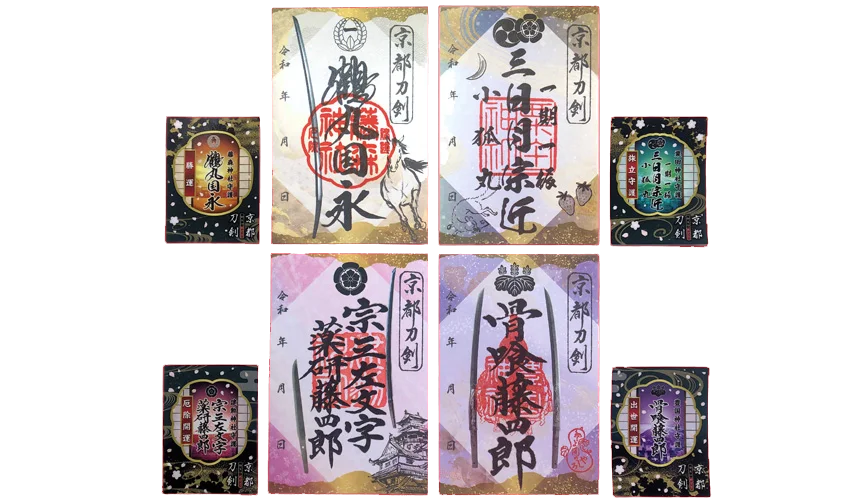 京都刀剣
鶴丸国永
令和 年 月 日
京都刀剣
一期一振
三日月宗近
小狐丸
令和 年 月 日
藤森神社守護
鶴丸国永
勝運
京都
刀剣
粟田神社守護
一期一振
三日月宗近
小狐丸
旅立守護
京都
刀剣
京都刀剣
宗三左文字
薬研藤四郎
令和 年 月 日
京都刀剣
骨喰藤四郎
令和 年 月 日
建勲神社守護
宗三左文字
薬研藤四郎
厄除開運
京都
刀剣
豊国神社守護
骨喰藤四郎
出世開運
京都
刀剣